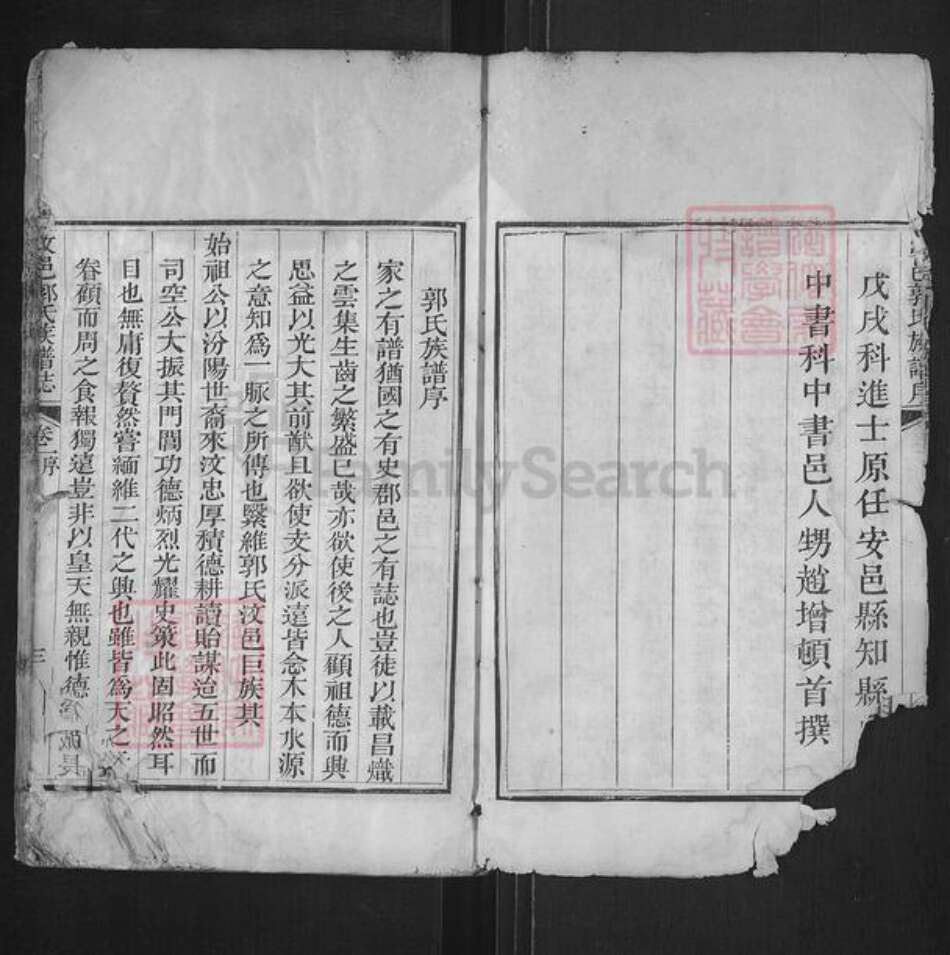 邑郭氏族譜序
戊戌科進士原任安邑縣知縣
中書科中書邑人甥趙增頓首撰
郭氏族譜序
家之有譜猶國之有史郡邑之有誌也豈徒以載昌熾
之雲集生齒之繁盛已哉亦欲使後之人顧祖德而興
思益以光大其前猷且欲使支分派遠皆念木本水源
之意知爲一脈之所傳也繄維郭氏汶邑巨族其
始祖公以汾陽世裔來汶忠厚積德耕讀貽謀迨五世而
司空公大振其門閭功德炳烈光耀史策此固昭然耳
目也無庸復贅然嘗緬維二代之興也雖皆爲天之
眷顧而周之食報獨遠豈非以皇天無親惟德
具
汶邑郭氏族譜誌
卷二序
三
FamilySearch